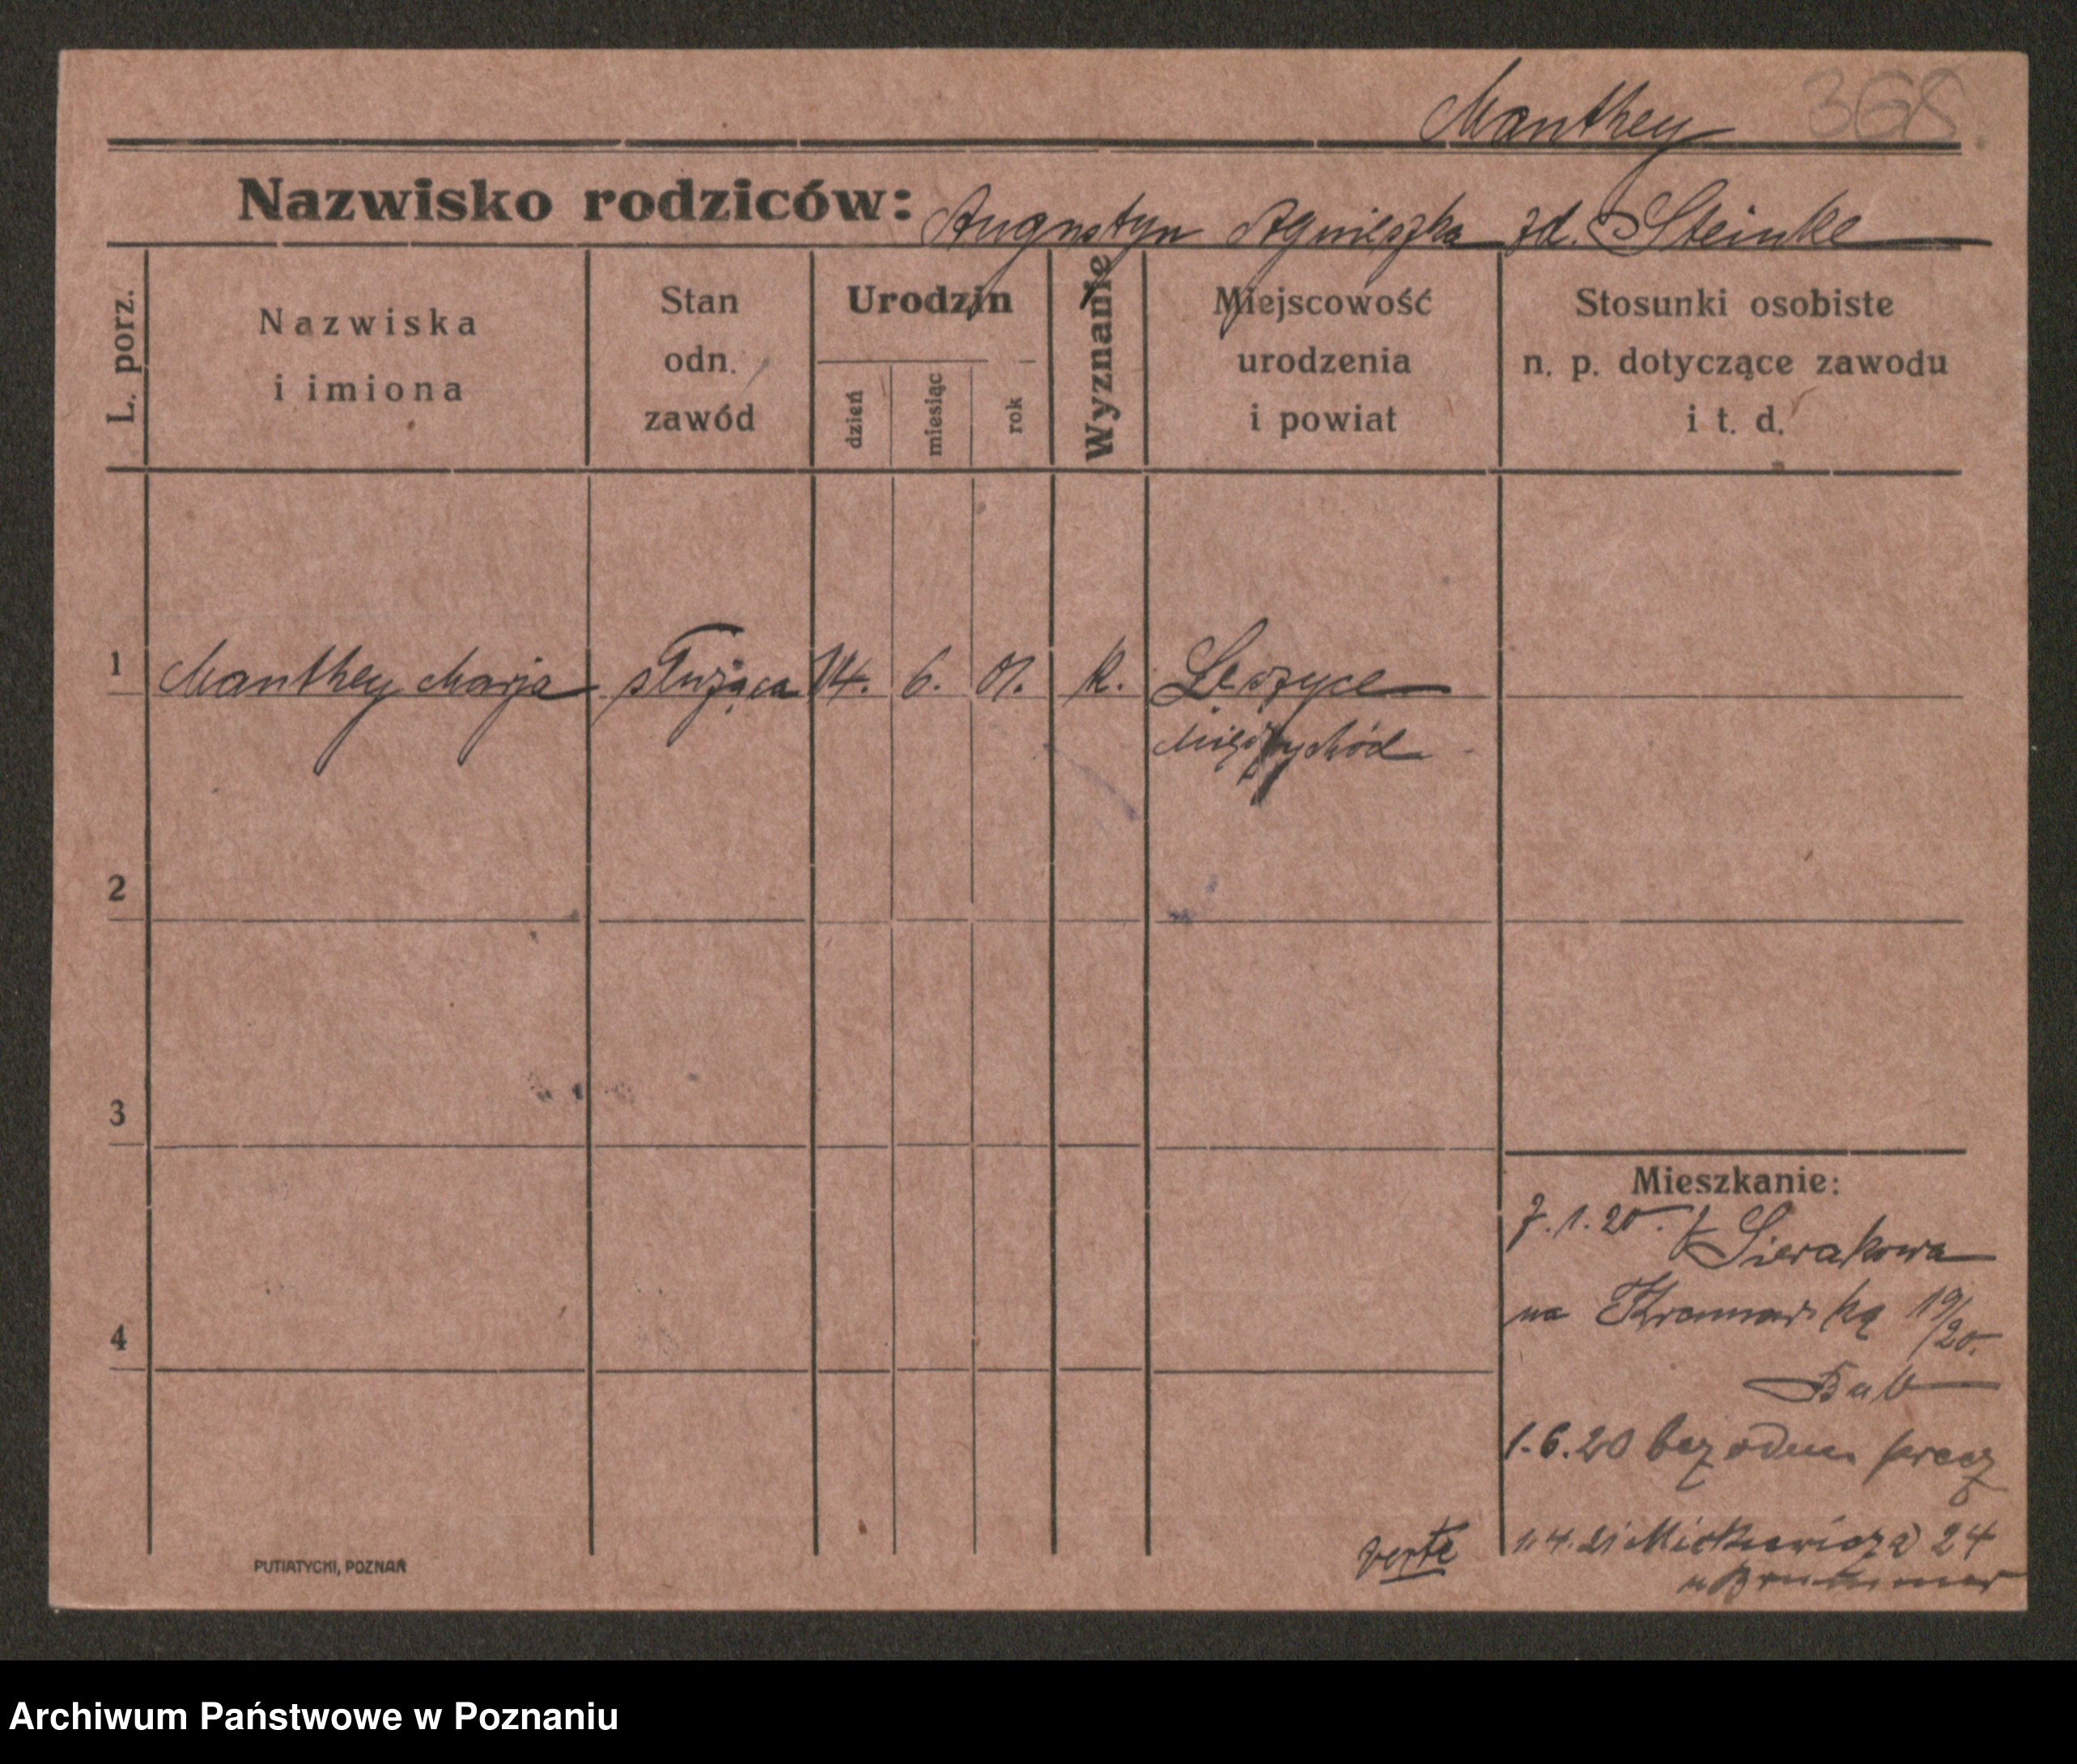 Manthey 368.
Nazwisko rodziców: Augustyn Agnieszka zd. Steinke
L. porz.
Nazwiska
i imiona
Stan
odn.
zawód
Urodzin
dzień
miesiąc
rok
Wyznanie
Miejscowość
urodzenia
i powiat
Stosunki osobiste
n. p. dotyczące zawodu
i t. d.
1 Manthey Marja służąca 14. 6. 01. k.
Międzychód
2
3
4
Mieszkanie:
7.1.20. z Sierakowa
na Kramarską 19/20.
1.6.20 bez odm. precz
1.4.21 Mickiewicza 24
verte
PUTIATYCKI, POZNAŃ
Archiwum Państwowe w Poznaniu